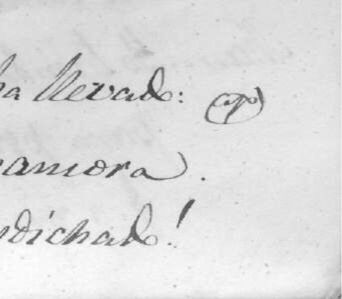 ha llevado:
namora.
ndichado!